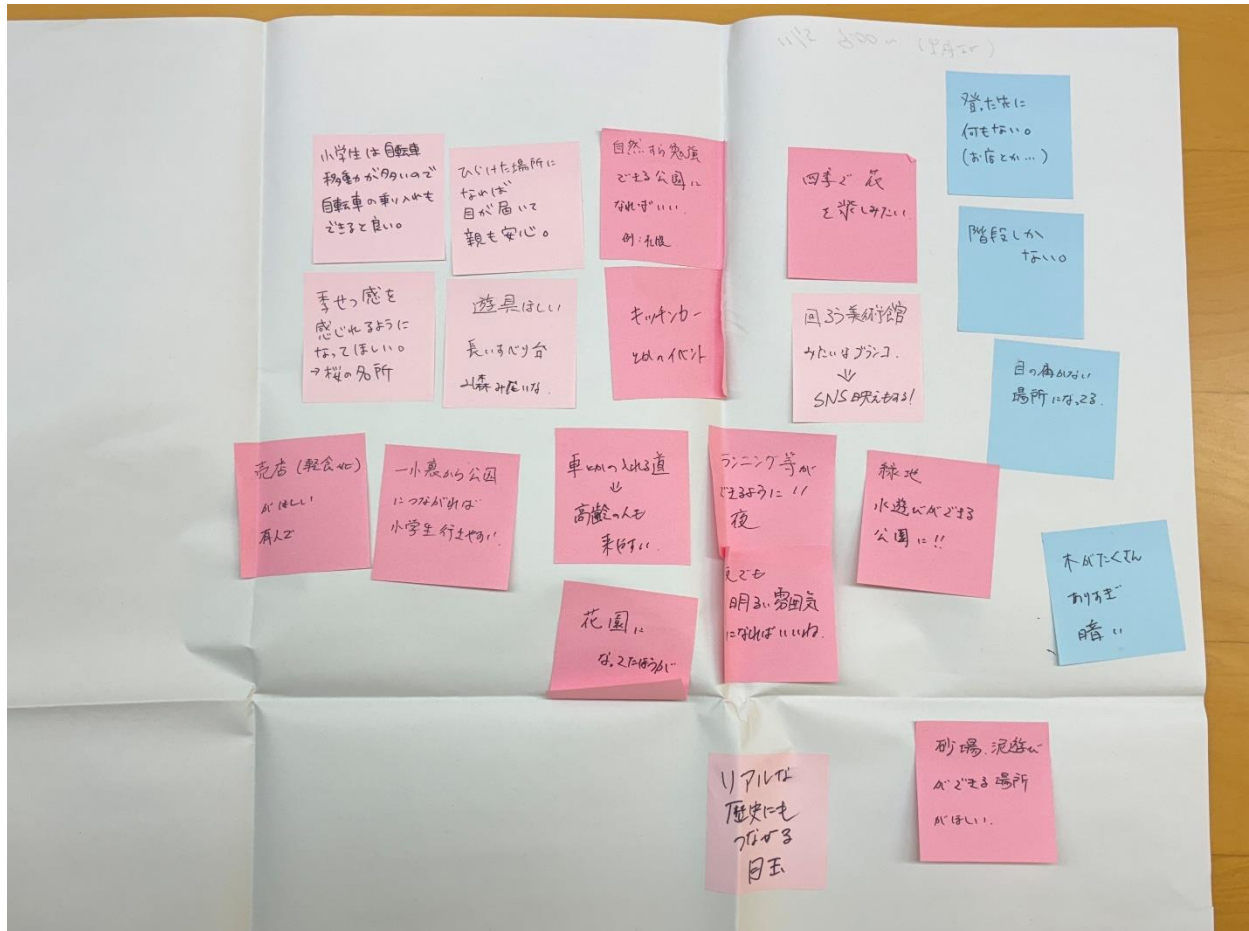 小学生は自転車
移動が多いので
自転車の乗り入れも
できると良い。
ひらけた場所に
なれば
目が届いて
親も安心。
自然すら勉強
できる公園に
なればいい.
例:札幌
四季で 花
を楽しみたい
登った先に
何もない。
(お店とか…)
階段しか
ない。
季せつ感を
感じれるように
なってほしい。
→桜の名所
遊具ほしい
長いすべり台
みたいな.
キッチンカー
とかのイベント
回ろう美術館
みたいなブランコ.
⇓
SNS映えもする!
目の届かない
場所になってる.
売店(軽食など)
がほしい
有人で
一小裏から公園
につながれば
小学生行きやすい.
車とかの入れる道
⇓
高齢の人も
来やすい.
ランニング等が
できるように!!
夜
夜でも
明るい雰囲気
になればいいね.
緑地
水遊びができる
公園に!!
木がたくさん
ありすぎ
暗い
花園に
なってたほうが
リアルな
歴史にも
つながる
目玉
砂場、泥遊び
ができる場所
がほしい.